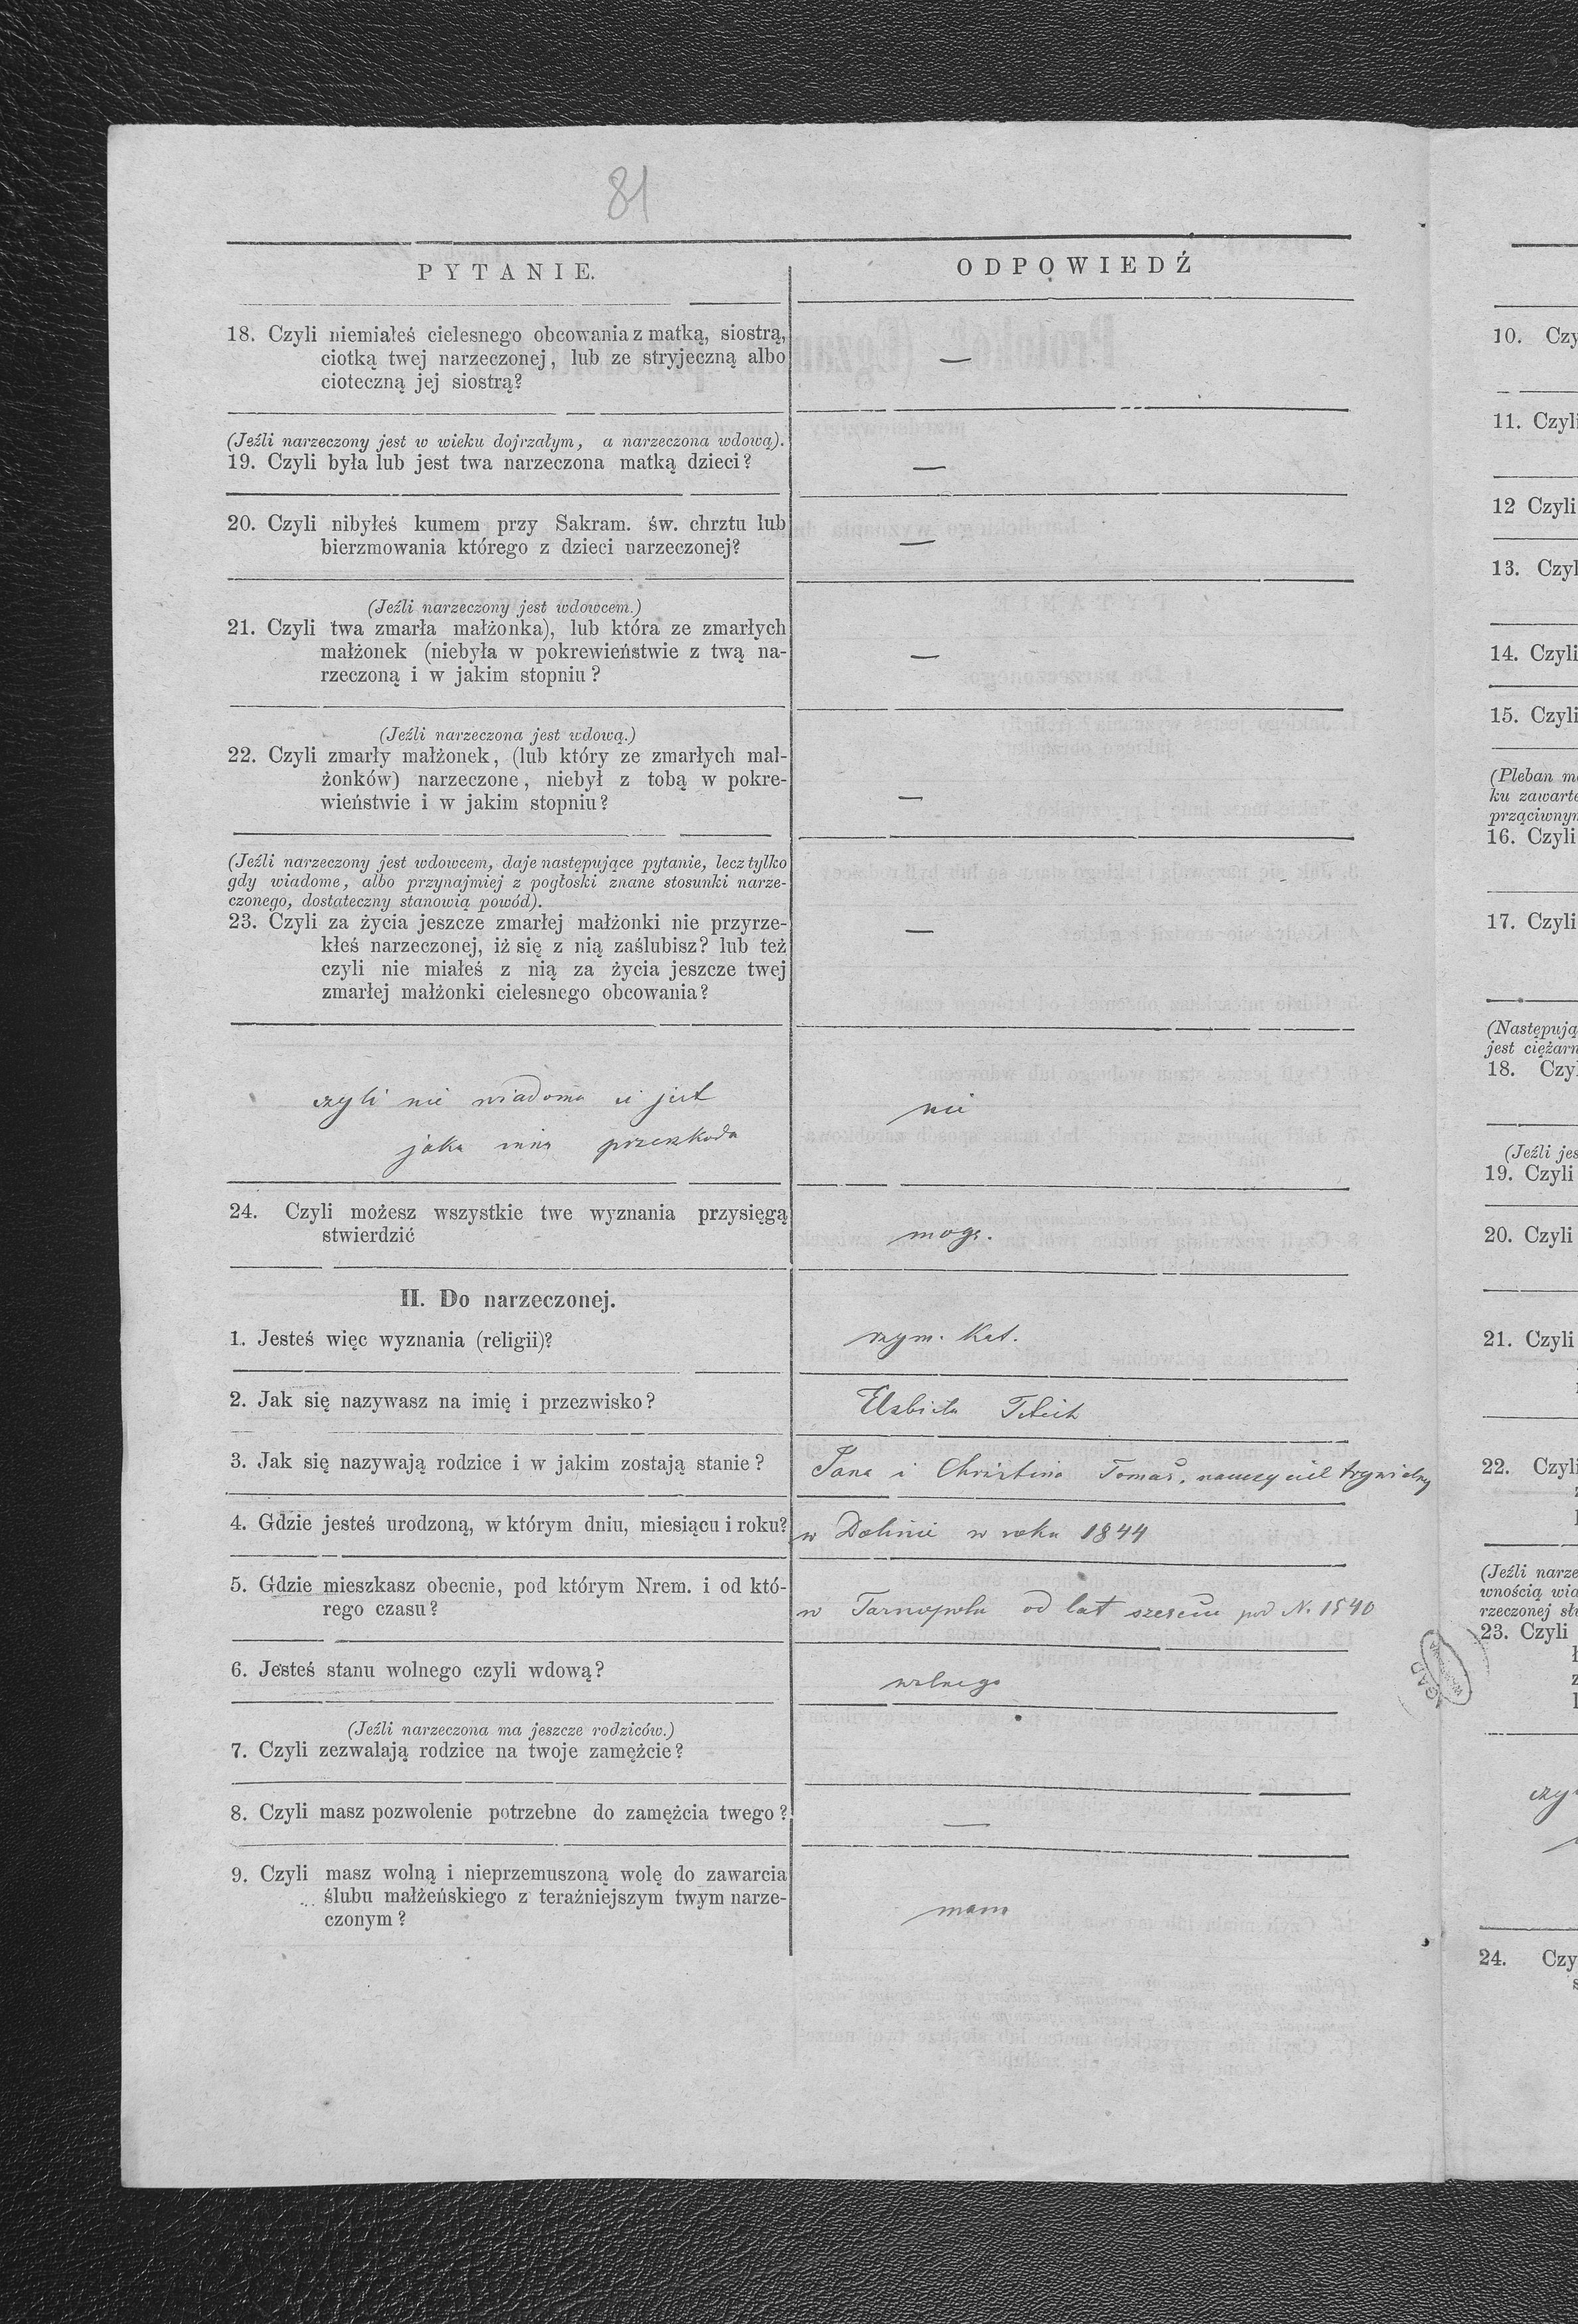 81
PYTANIE.
ODPOWIEDŹ
18. Czyli niemiałeś cielesnego obcowania z matką, siostrą,
ciotką twej narzeczonej, lub ze stryjeczną albo
cioteczną jej siostrą?
—
(Jeźli narzeczony jest w wieku dojrzałym, a narzeczona wdową).
19. Czyli była lub jest twa narzeczona matką dzieci?
—
20. Czyli nibyłeś kumem przy Sakram. św. chrztu lub
bierzmowania którego z dzieci narzeczonej?
—
(Jeźli narzeczony jest wdowcem.)
21. Czyli twa zmarła małżonka), lub która ze zmarłych
małżonek (niebyła w pokrewieństwie z twą na-
rzeczoną i w jakim stopniu?
—
(Jeźli narzeczona jest wdową.)
22. Czyli zmarły małżonek, (lub który ze zmarłych mał-
żonków) narzeczone, niebył z tobą w pokre-
wieństwie i w jakim stopniu?
—
(Jeźli narzeczony jest wdowcem, daje następujące pytanie, lecz tylko
gdy wiadome, albo przynajmiej z pogłoski znane stosunki narze-
czonego, dostateczny stanowią powód).
23. Czyli za życia jeszcze zmarłej małżonki nie przyrze-
kłeś narzeczonej, iż się z nią zaślubisz? lub też
czyli nie miałeś z nią za życia jeszcze twej
zmarłej małżonki cielesnego obcowania?
—
czyli nie wiadoma ci jest
jaka inna przeszkoda
nie
24. Czyli możesz wszystkie twe wyznania przysięgą
stwierdzić
mogę.
II. Do narzeczonej.
1. Jesteś więc wyznania (religii)?
rzym. Kat.
2. Jak się nazywasz na imię i przezwisko?
Elżbieta
3. Jak się nazywają rodzice i w jakim zostają stanie?
Jana i Christina Tomaš, nauczyciel trywialny
4. Gdzie jesteś urodzoną, w którym dniu, miesiącu i roku?
w Dolinie w roku 1844
5. Gdzie mieszkasz obecnie, pod którym Nrem. i od któ-
rego czasu?
w Tarnopolu od lat sześciu pod N. 1540
6. Jesteś stanu wolnego czyli wdową?
wolnego
(Jeźli narzeczona ma jeszcze rodziców.)
7. Czyli zezwalają rodzice na twoje zamężcie?
8. Czyli masz pozwolenie potrzebne do zamężcia twego?
—
9. Czyli masz wolną i nieprzemuszoną wolę do zawarcia
ślubu małżeńskiego z teraźniejszym twym narze-
czonym?
mam
10. Czy
11. Czyli
12 Czyli
13. Czyl
14. Czyli
15. Czyli
(Pleban m
ku zawarte
prząciwnyn
16. Czyli
17. Czyli
(Następują
jest ciężarn
18. Czyl
(Jeźli jes
19. Czyli
20. Czyli
21. Czyli
22. Czyli
(Jeźli narze
wnością wia
rzeczonej słu
23. Czyli
AGAD
czy
24. Czy